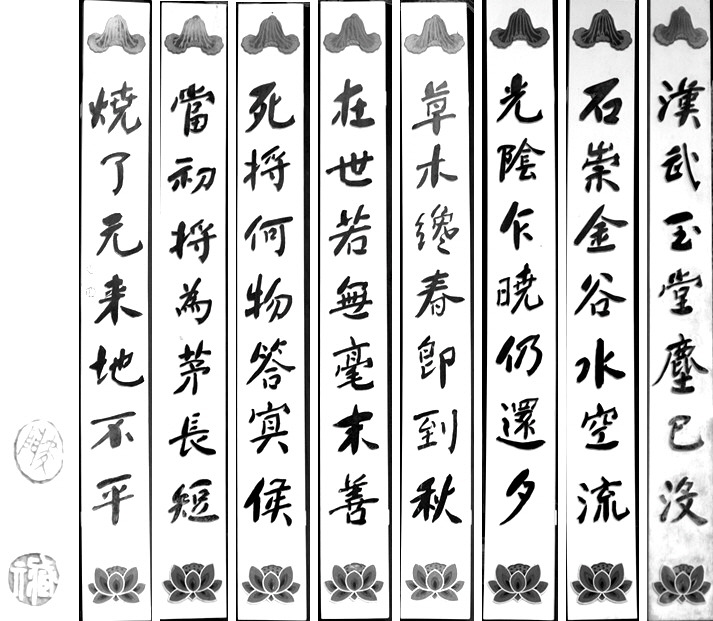 漢武玉堂塵已没
石崇金谷水空流
光陰乍曉仍還夕
草木纔春即到秋
在世若無毫末善
死將何物答冥候
當初將為茅長短
燒了元来地不平